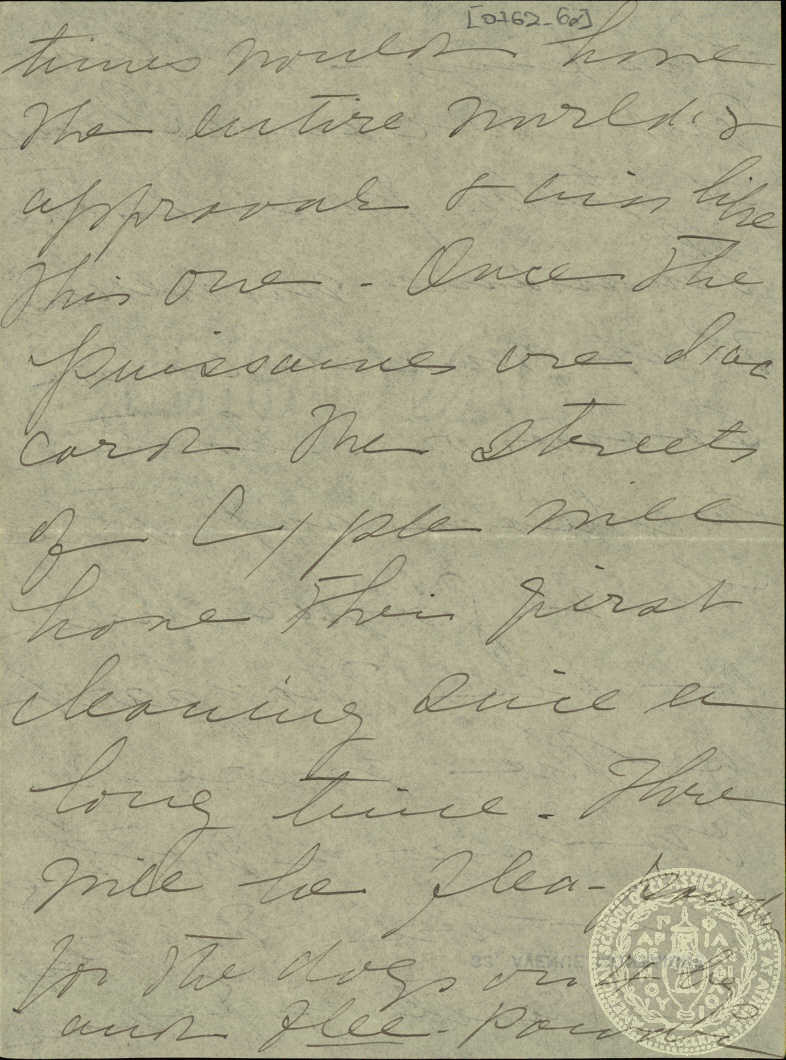 [0762-6a]
times would have
the entire world's
approval & airs like
this one - Once the
puissances are disc
card the streets
of Cyple will
have their first
cleaning since a
long time. There
will be flea-powder
for the dogs
and flee-powder